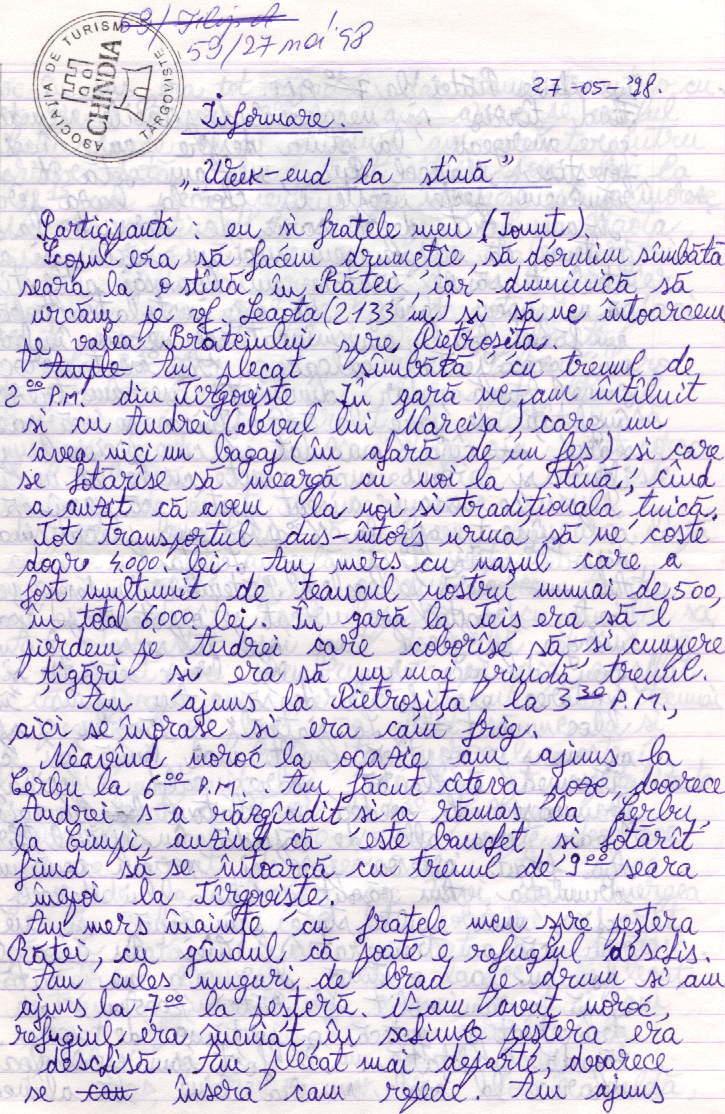 59/27 mai '98
ASOCIAȚIA DE TURISM
CHINDIA
TÂRGOVIȘTE
27-05-'98.
Informare.
„Week-end la stînă"
Participanti : eu si fratele meu (Ionut).
Scopul era să facem drumetie, să dormim sîmbătă
seara la o stînă în Rătei, iar duminică să
urcăm pe vf. Leaota (2133 m) si să ne întoarcem
pe valea Brăteiului spre Pietrosita.
Am plecat sîmbătă cu trenul de
2⁰⁰ P.M. din Tîrgoviste. În gară ne-am întîlnit
si cu Andrei (elevul lui Narcisa) care nu
avea nici un bagaj (în afară de un fes) si care
se hotarîse să meargă cu noi la stînă, cînd
a auzit că avem la noi si traditionala tuică.
Tot transportul dus-întors urma să ne coste
doar 4.000 lei. Am mers cu nasul care a
fost multumit de teancul nostru numai de 500,
în total 6000 lei. În gară la Teis era să-l
pierdem pe Andrei care coborîse să-si cumpere
tigări si era să nu mai prindă trenul.
Am ajuns la Pietrosita la 3³⁰ P.M.,
aici se înorase si era cam frig.
Neavînd noroc la ocazie am ajuns la
Cerbu la 6⁰⁰ P.M.. Am făcut cîteva poze, deoarece
Andrei s-a răzgîndit si a rămas la Cerbu,
la Cimpi, auzind că este banchet si hotărît
fiind să se întoarcă cu trenul de 9⁰⁰ seara
înapoi la Tîrgoviste.
Am mers înainte cu fratele meu spre pestera
Rătei, cu gîndul că poate e refugiul deschis.
Am cules muguri de brad pe drum si am
ajuns la 7⁰⁰ la pesteră. N-am avut noroc,
refugiul era încuiat, în schimb pestera era
deschisă. Am plecat mai departe, deoarece
se însera cam repede. Am ajuns